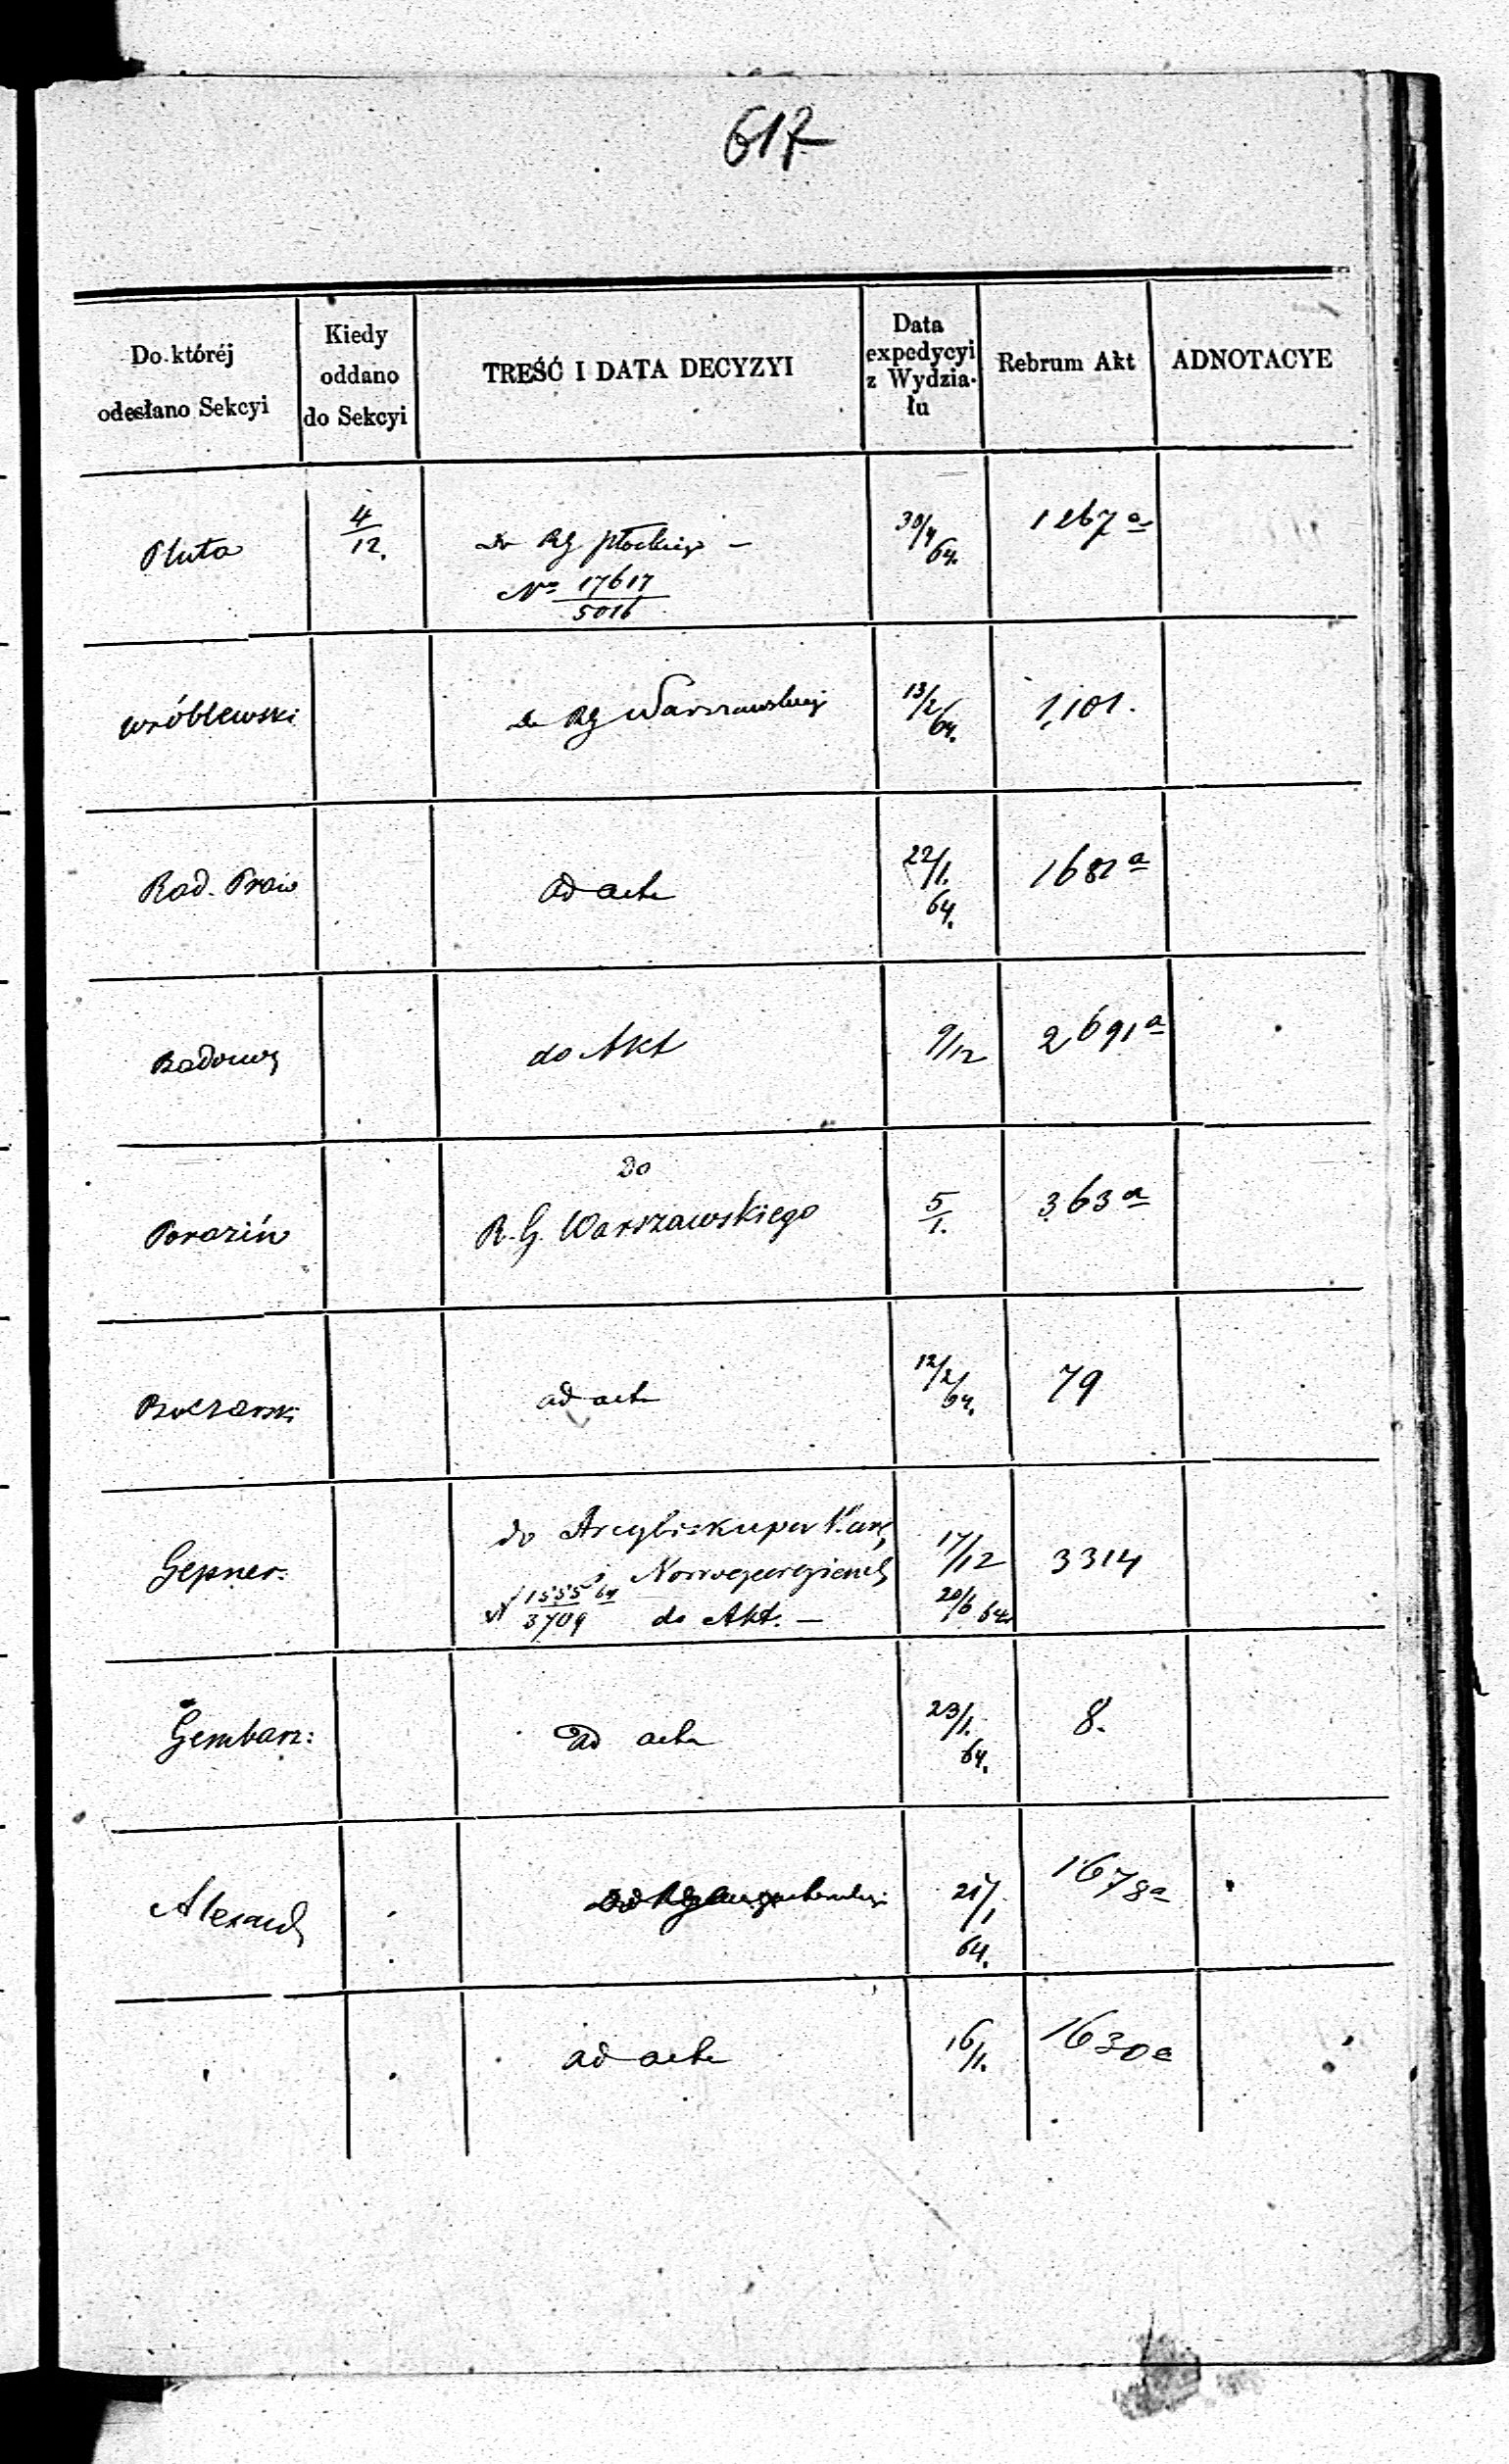 617
Do któréj
odesłano Sekcyi
Kiedy
oddano
do Sekcyi
TREŚĆ I DATA DECYZYI
Data
expedycyi
z Wydzia-
łu
Rebrum Akt
ADNOTACYE
Pluta
4/12.
Do RG Płockiego —
No 17617/5016
30/4/64.
1267 a
Wróblewski
do RG Warszawskiej
13/2/64.
1,101.
Rad. Praw
ad acta
22/1.
64.
1682 a
Badowy
do Akt
9/12
2691 a
Porazin
Do
R. G. Warszawskiego
5/1.
363 a
Boczarski
ad acta
12/2/64.
79
Gepner:
do Arcybiskupa
17/12
3314
N 1555 64/3709 do Akt. —
20/6 64
Gembarz:
Ad acta
23/1.
64.
8.
Alexand
21/1
64.
1678 a
ad acta
16/1.
1630 a